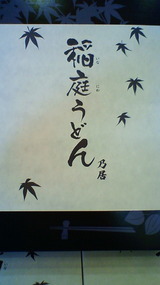 稲庭うどん
乃居